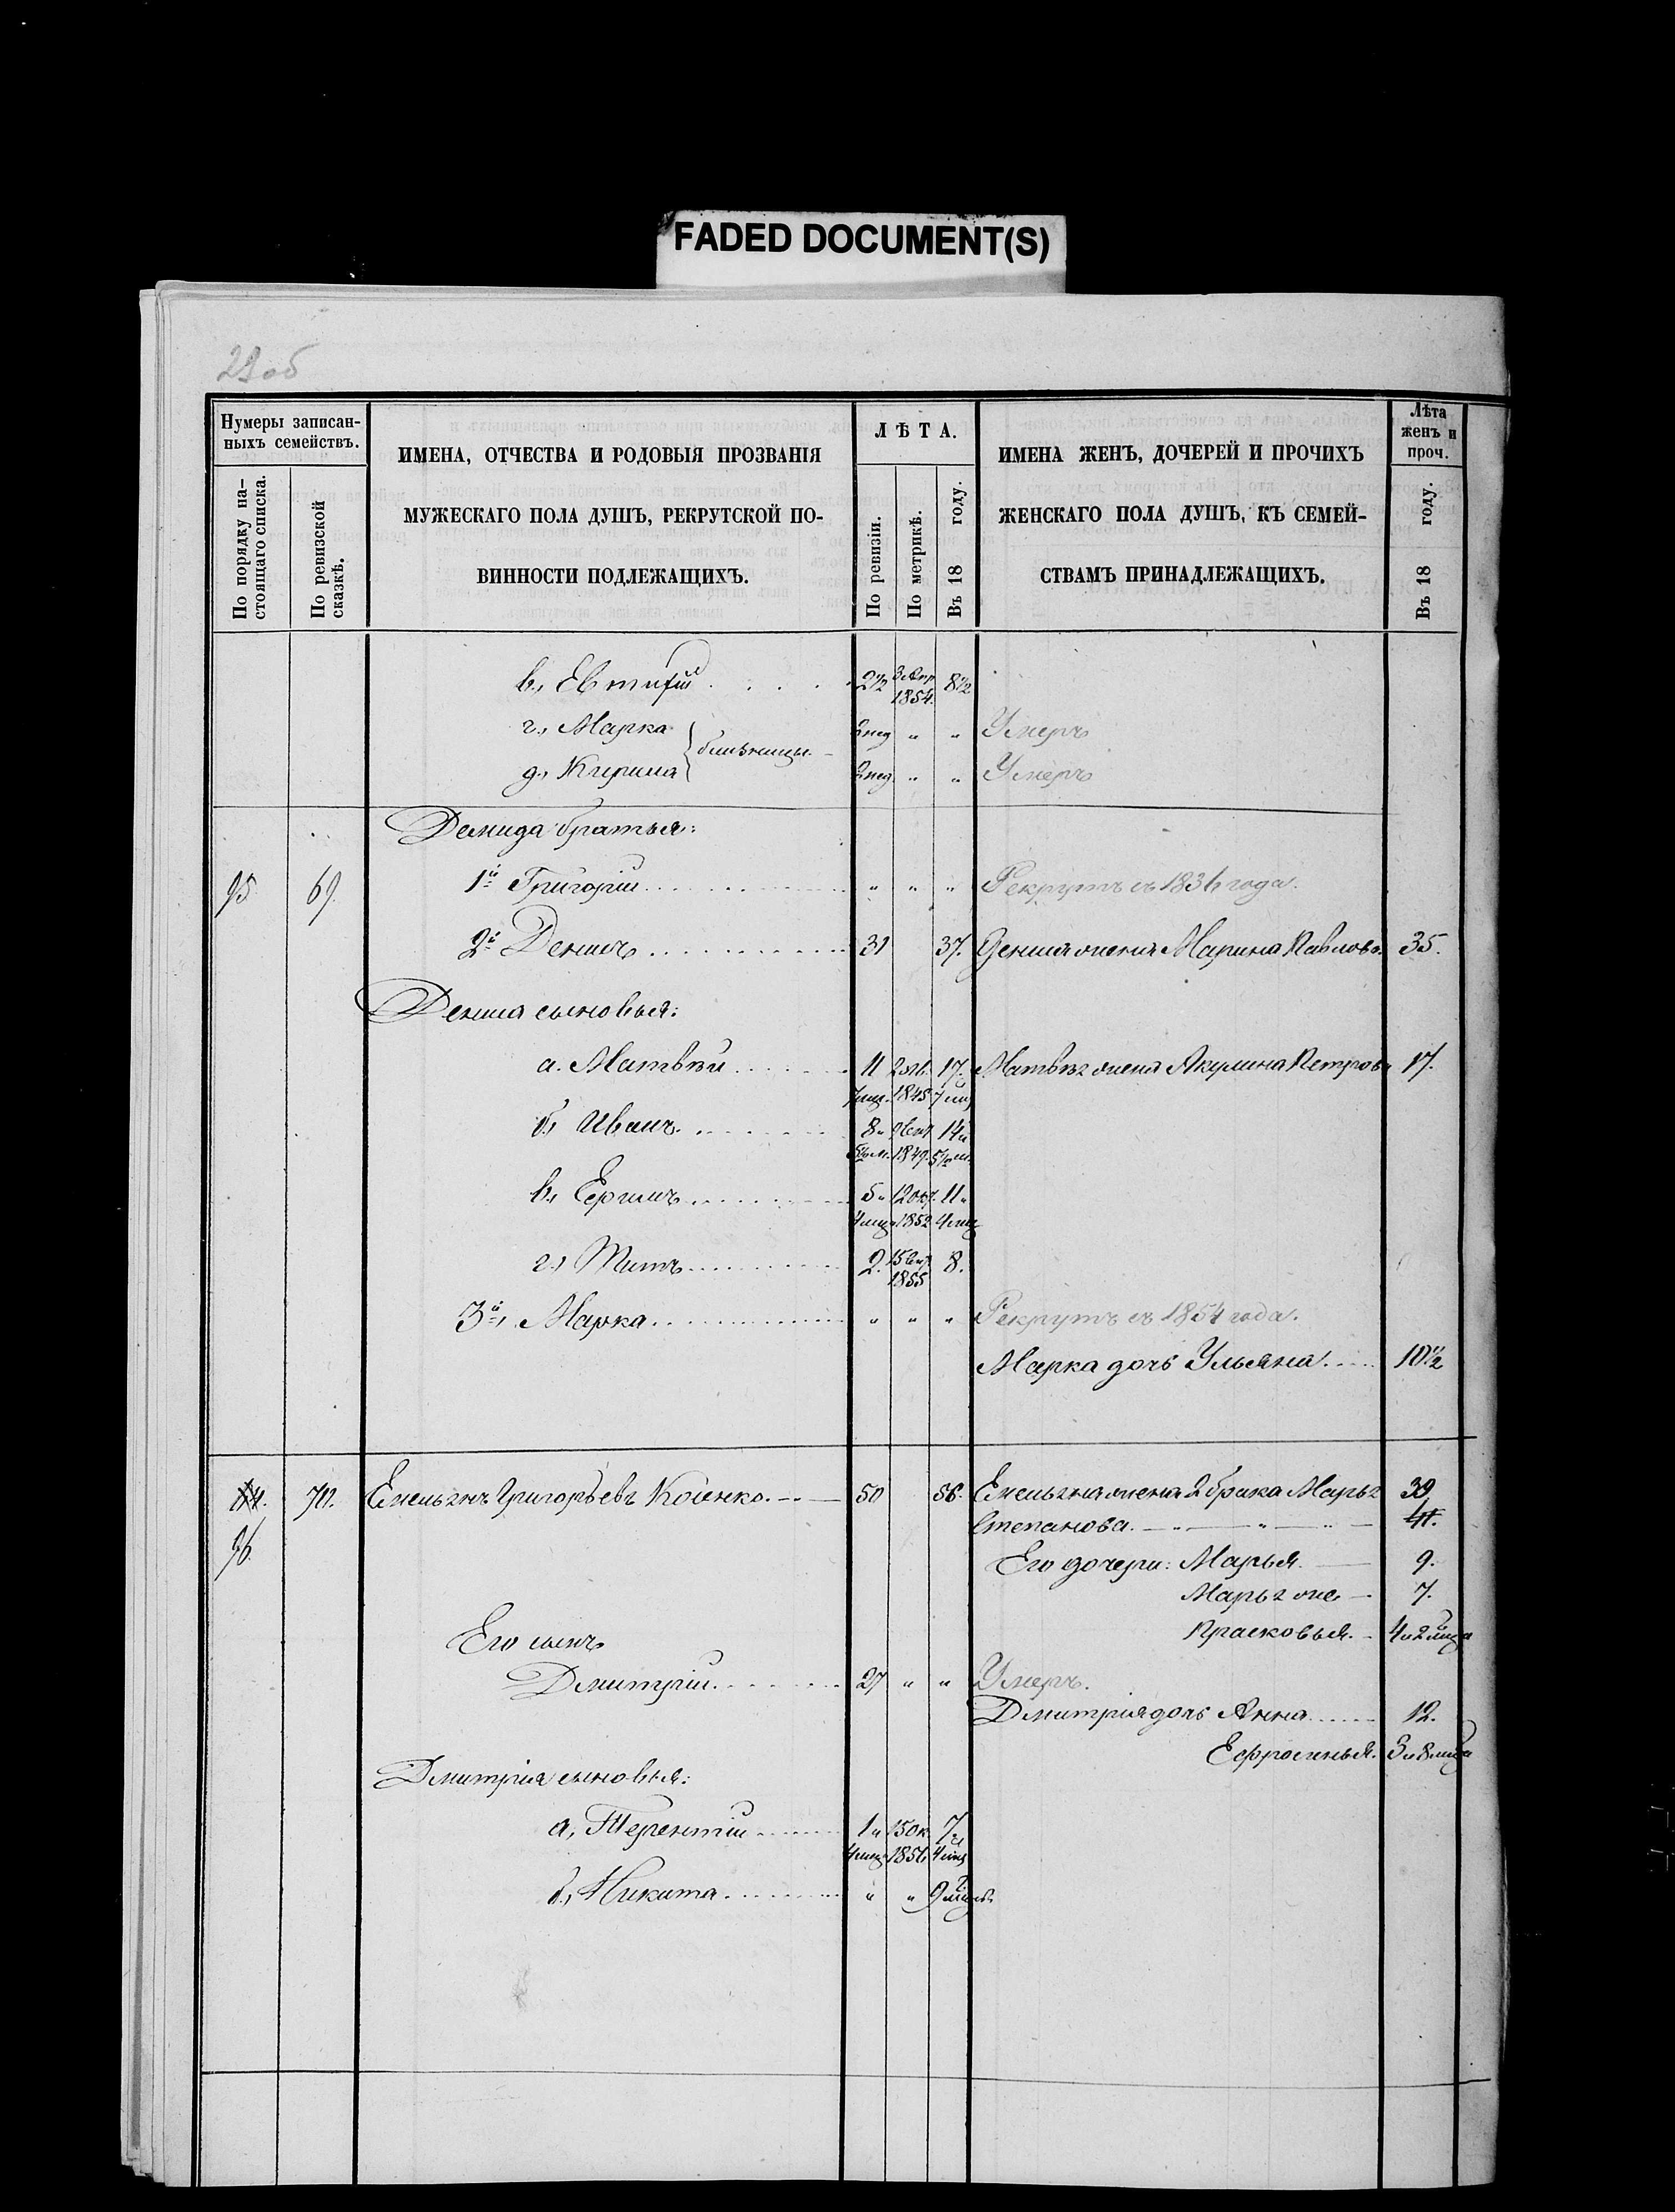 FADED DOCUMENT(S)
29 об
Нумеры записан-
ныхъ семействъ.
По порядку на-
стоящаго списка.
По ревизской
сказкѣ.
ИМЕНА, ОТЧЕСТВА И РОДОВЫЯ ПРОЗВАНІЯ
МУЖЕСКАГО ПОЛА ДУШЪ, РЕКРУТСКОЙ ПО-
ВИННОСТИ ПОДЛЕЖАЩИХЪ.
ЛѢТА.
По ревизіи.
По метрикѣ.
Въ 18 году.
ИМЕНА ЖЕНЪ, ДОЧЕРЕЙ И ПРОЧИХЪ
ЖЕНСКАГО ПОЛА ДУШЪ, КЪ СЕМЕЙ-
СТВАМЪ ПРИНАДЛЕЖАЩИХЪ.
Лѣта
женъ и
проч.
Въ 18 году.
в., Евтифій 2½ 3 Апр 1854. 8½
г., Марка близнецы 2 нед " " Умеръ
д., Кирила 2 нед. " " Умеръ
Демида братья:
95 69. 1й Григорій " " " Рекрутъ съ 1836 года.
2й Денисъ 31 37. Дениса жена Марина Павлова. 35.
Дениса сыновья:
а. Матвѣй 11 17. Матвѣя жена Акулина Петрова 17.
7 мц. 1845 7 мц
б., Иванъ 8 14 и
1849. 5½ м.
в., Ергилъ 5 12 окт. 11
4 мца 1852 4 мца
г., Титъ 2. 15 1855 8.
3й, Марка " " " Рекрутъ съ 1854 года.
Марка дочь Ульяна 10½
94. 70. Емельянъ Григорьевъ Коенко. 50 56. Емельяна жена 2 брака Марья 39
96. Степанова. 41.
Его дочери: Марья. 9.
Марья же 7.
Его сынъ Прасковья. 4 и 2 мца
Дмитрій 27 " " Умеръ.
Дмитрія дочь Анна 12.
Ефросинья. 3 и 8 мца
Дмитрія сыновья:
а, Терентій 1 и 15 ок. 7 и
4 мца 1856 4 мц
б., Никита " " 9 мцев